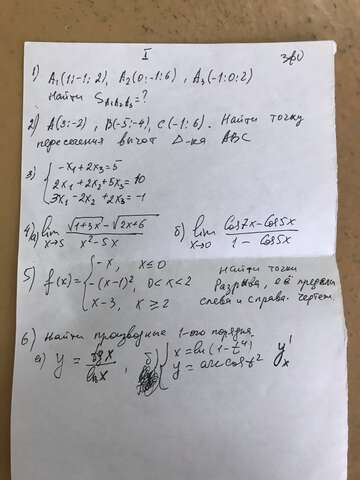 I
1) A₁(1;-1; 2), A₂(0;-1;6), A₃(-1;0;2)
Найти S A₁A₂A₃ = ?
2) A(3;-2), B(-5;-4), C(-1;6). Найти точку
пересечения высот Δ-ка ABC
3) { -x₁+2x₃=5
2x₁+2x₂+5x₃=10
3x₁-2x₂+2x₃=-1
4) a) lim x→5 (√(1+3x) - √(2x+6))/(x²-5x) б) lim x→0 (Cos7x-Cos5x)/(1-Cos5x)
5) f(x)= { -x, x≤0 Найти точки
-(x-1)², 0<x<2 разрыва, её пределы
x-3, x≥2 слева и справа. Чертеж.
6) Найти производные 1-ого порядка
a) y = tg x/ln x, б) { x=ln(1-t⁴) y'ₓ
y=arccos t²